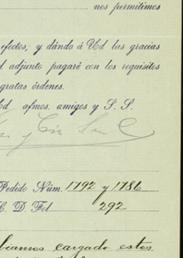 nos permitimos
efectos, y dándo á Ud las gracias
l adjunto pagaré con los requisitos
gratas órdenes.
Ud. afmos. amigos y S. S.
Pedido Núm. 1792 y 1786
C. D Fol 292
biamos cargado estos